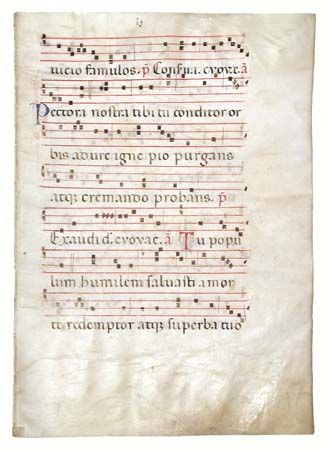 uicio famulos. p Confua. evovae. a
Pectora nostra tibi tu conditor or
bis adure igne pio purgans
atq; cremando probans. p
Exaudi d. evovae. a Tu popu
lum humilem saluasti amor
te redemptor atq; superba tuo